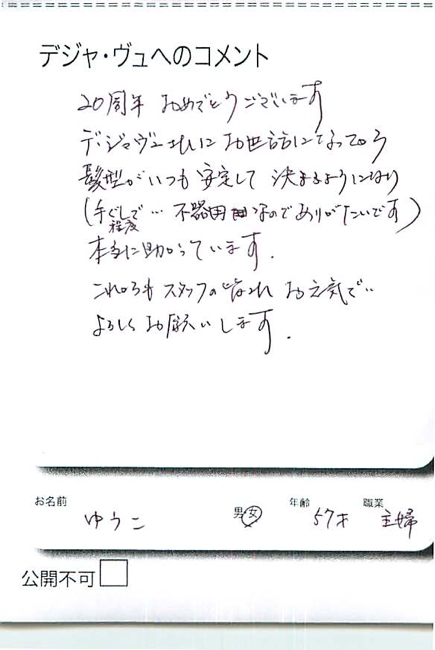 デジャ・ヴュへのコメント
20周年 おめでとうございます
デジャヴュさんにお世話になってから
髪型がいつも安定して 決まるようになり
(手ぐしで… 不器用なのでありがたいです)
程度
本当に助かっています.
これからも スタッフの皆さん お元気で…
よろしくお願いします.
お名前 ゆうこ 男 女 年齢 57才 職業 主婦
公開不可